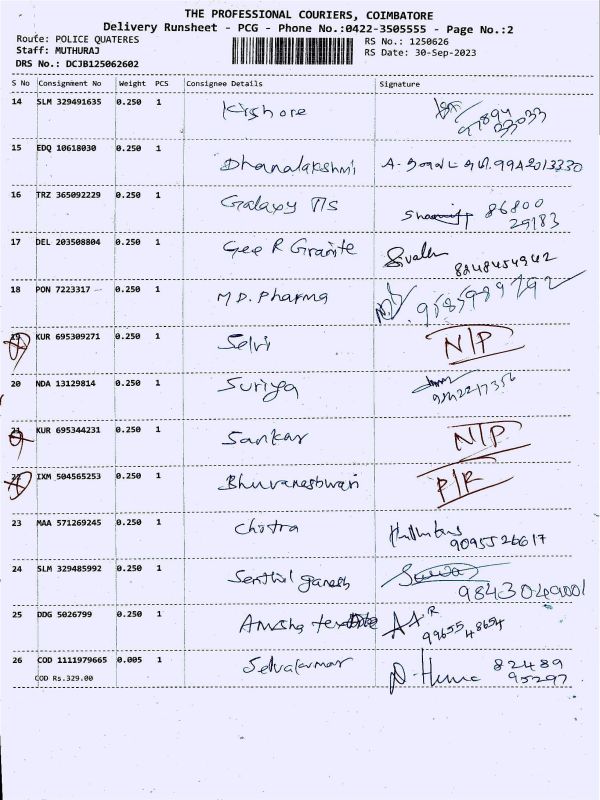 THE PROFESSIONAL COURIERS, COIMBATORE
Delivery Runsheet - PCG - Phone No.:0422-3505555 - Page No.:2
Route: POLICE QUATERES RS No.: 1250626
Staff: MUTHURAJ RS Date: 30-Sep-2023
DRS No.: DCJB125062602
S No Consignment No Weight PCS Consignee Details Signature
14 SLM 329491635 0.250 1 Kishore 97894
23033
15 EDQ 10618030 0.250 1 Dhanalakshmi 9942013330
16 TRZ 365092229 0.250 1 Galaxy 86800
29183
17 DEL 203508804 0.250 1 Gee R Granite 8248454942
18 PON 7223317 0.250 1 M D. Pharma
19 KUR 695309271 0.250 1 Selvi N/P
20 NDA 13129814 0.250 1 Suriya
21 KUR 695344231 0.250 1 Sankar N/P
22 IXM 504565253 0.250 1 Bhuvaneshwari P/R
23 MAA 571269245 0.250 1 Chitra
9095526617
24 SLM 329485992 0.250 1 Senthil ganesh
9843049001
25 DDG 5026799 0.250 1 Amsha
99655 48654
26 COD 1111979665 0.005 1 Selvakumar 82489
COD Rs.329.00 95297